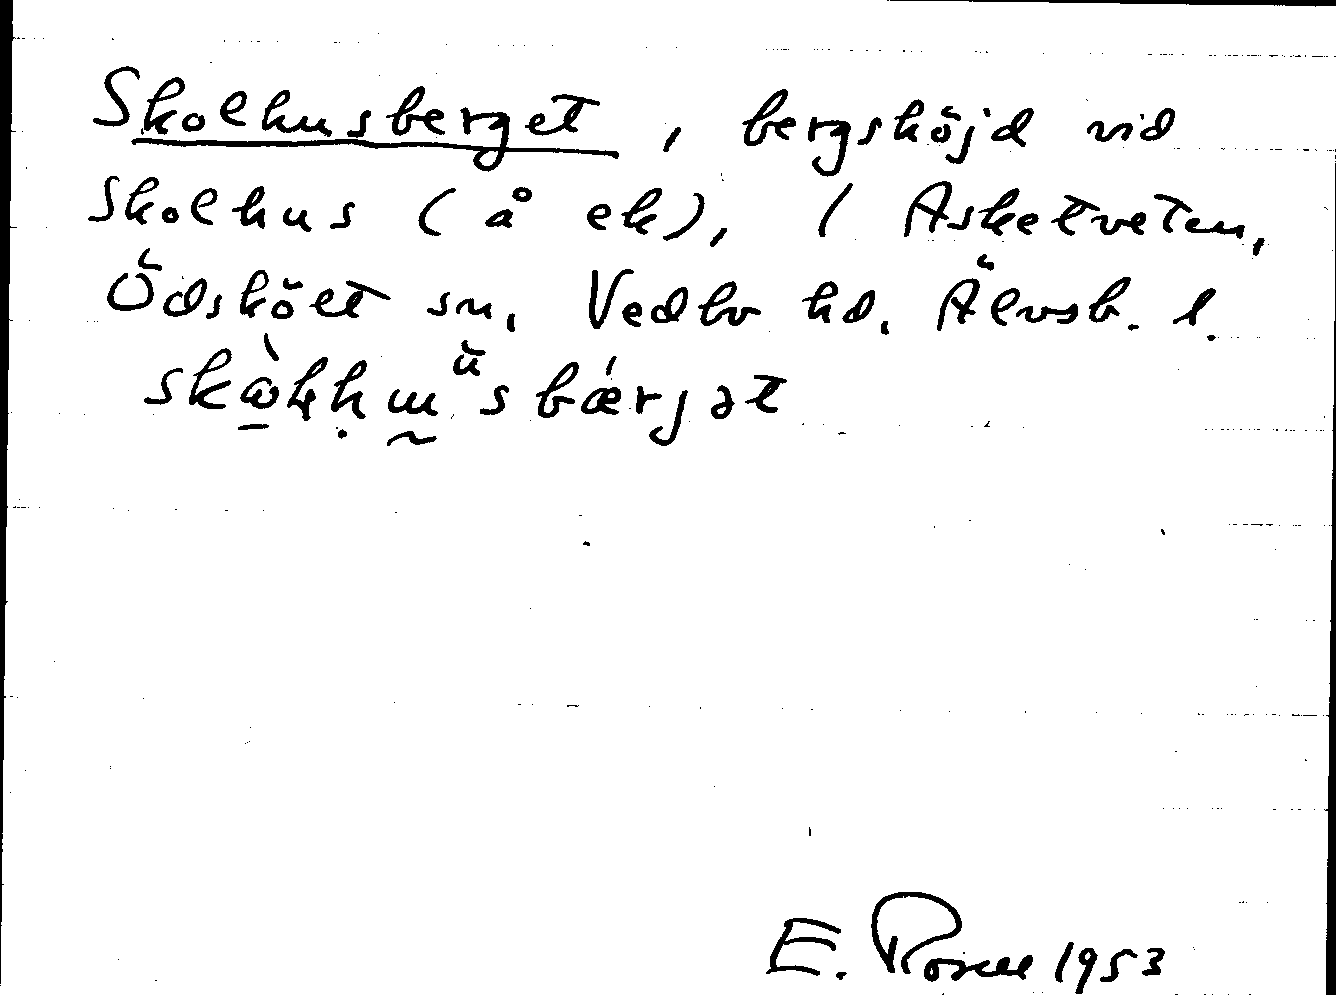 Skolhusberget, bergshöjd vid
Skolhus (å ek), / Asketveten,
Ödskölt sn, Vedbo hd. Älvsb. l.
E. Rosell 1953